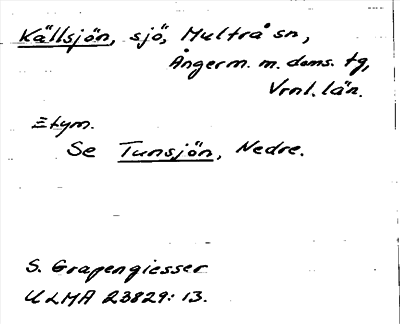 Källsjön, sjö, Multrå sn,
Ångerm. m. doms. tg,
Vrnl. län.
Etym.
Se Tunsjön, Nedre.
S. Grapengiesser
ULMA 23829: 13.